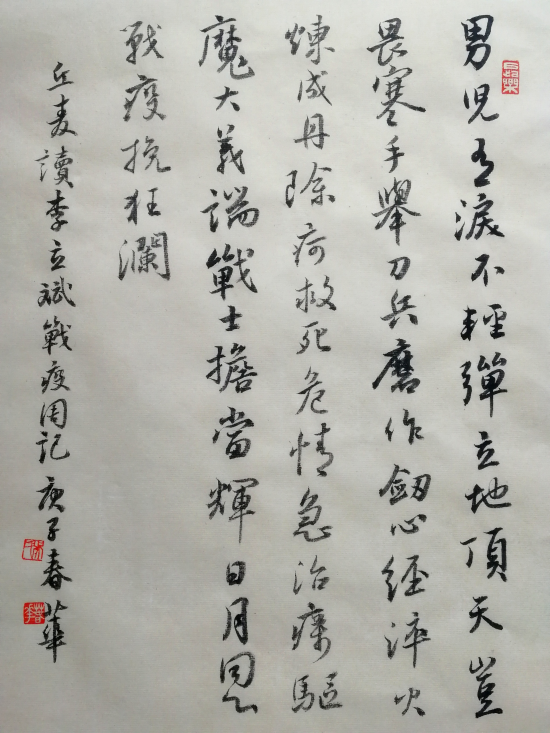 男兒有淚不輕彈立地頂天豈
畏寒手舉刀兵磨作劒心經淬火
煉成丹除疴救死危情急治癘驅
魔大義端戰士擔當輝日月同心
戰疫挽狂瀾
丘麦讀李立斌戰疫周記庚子春華